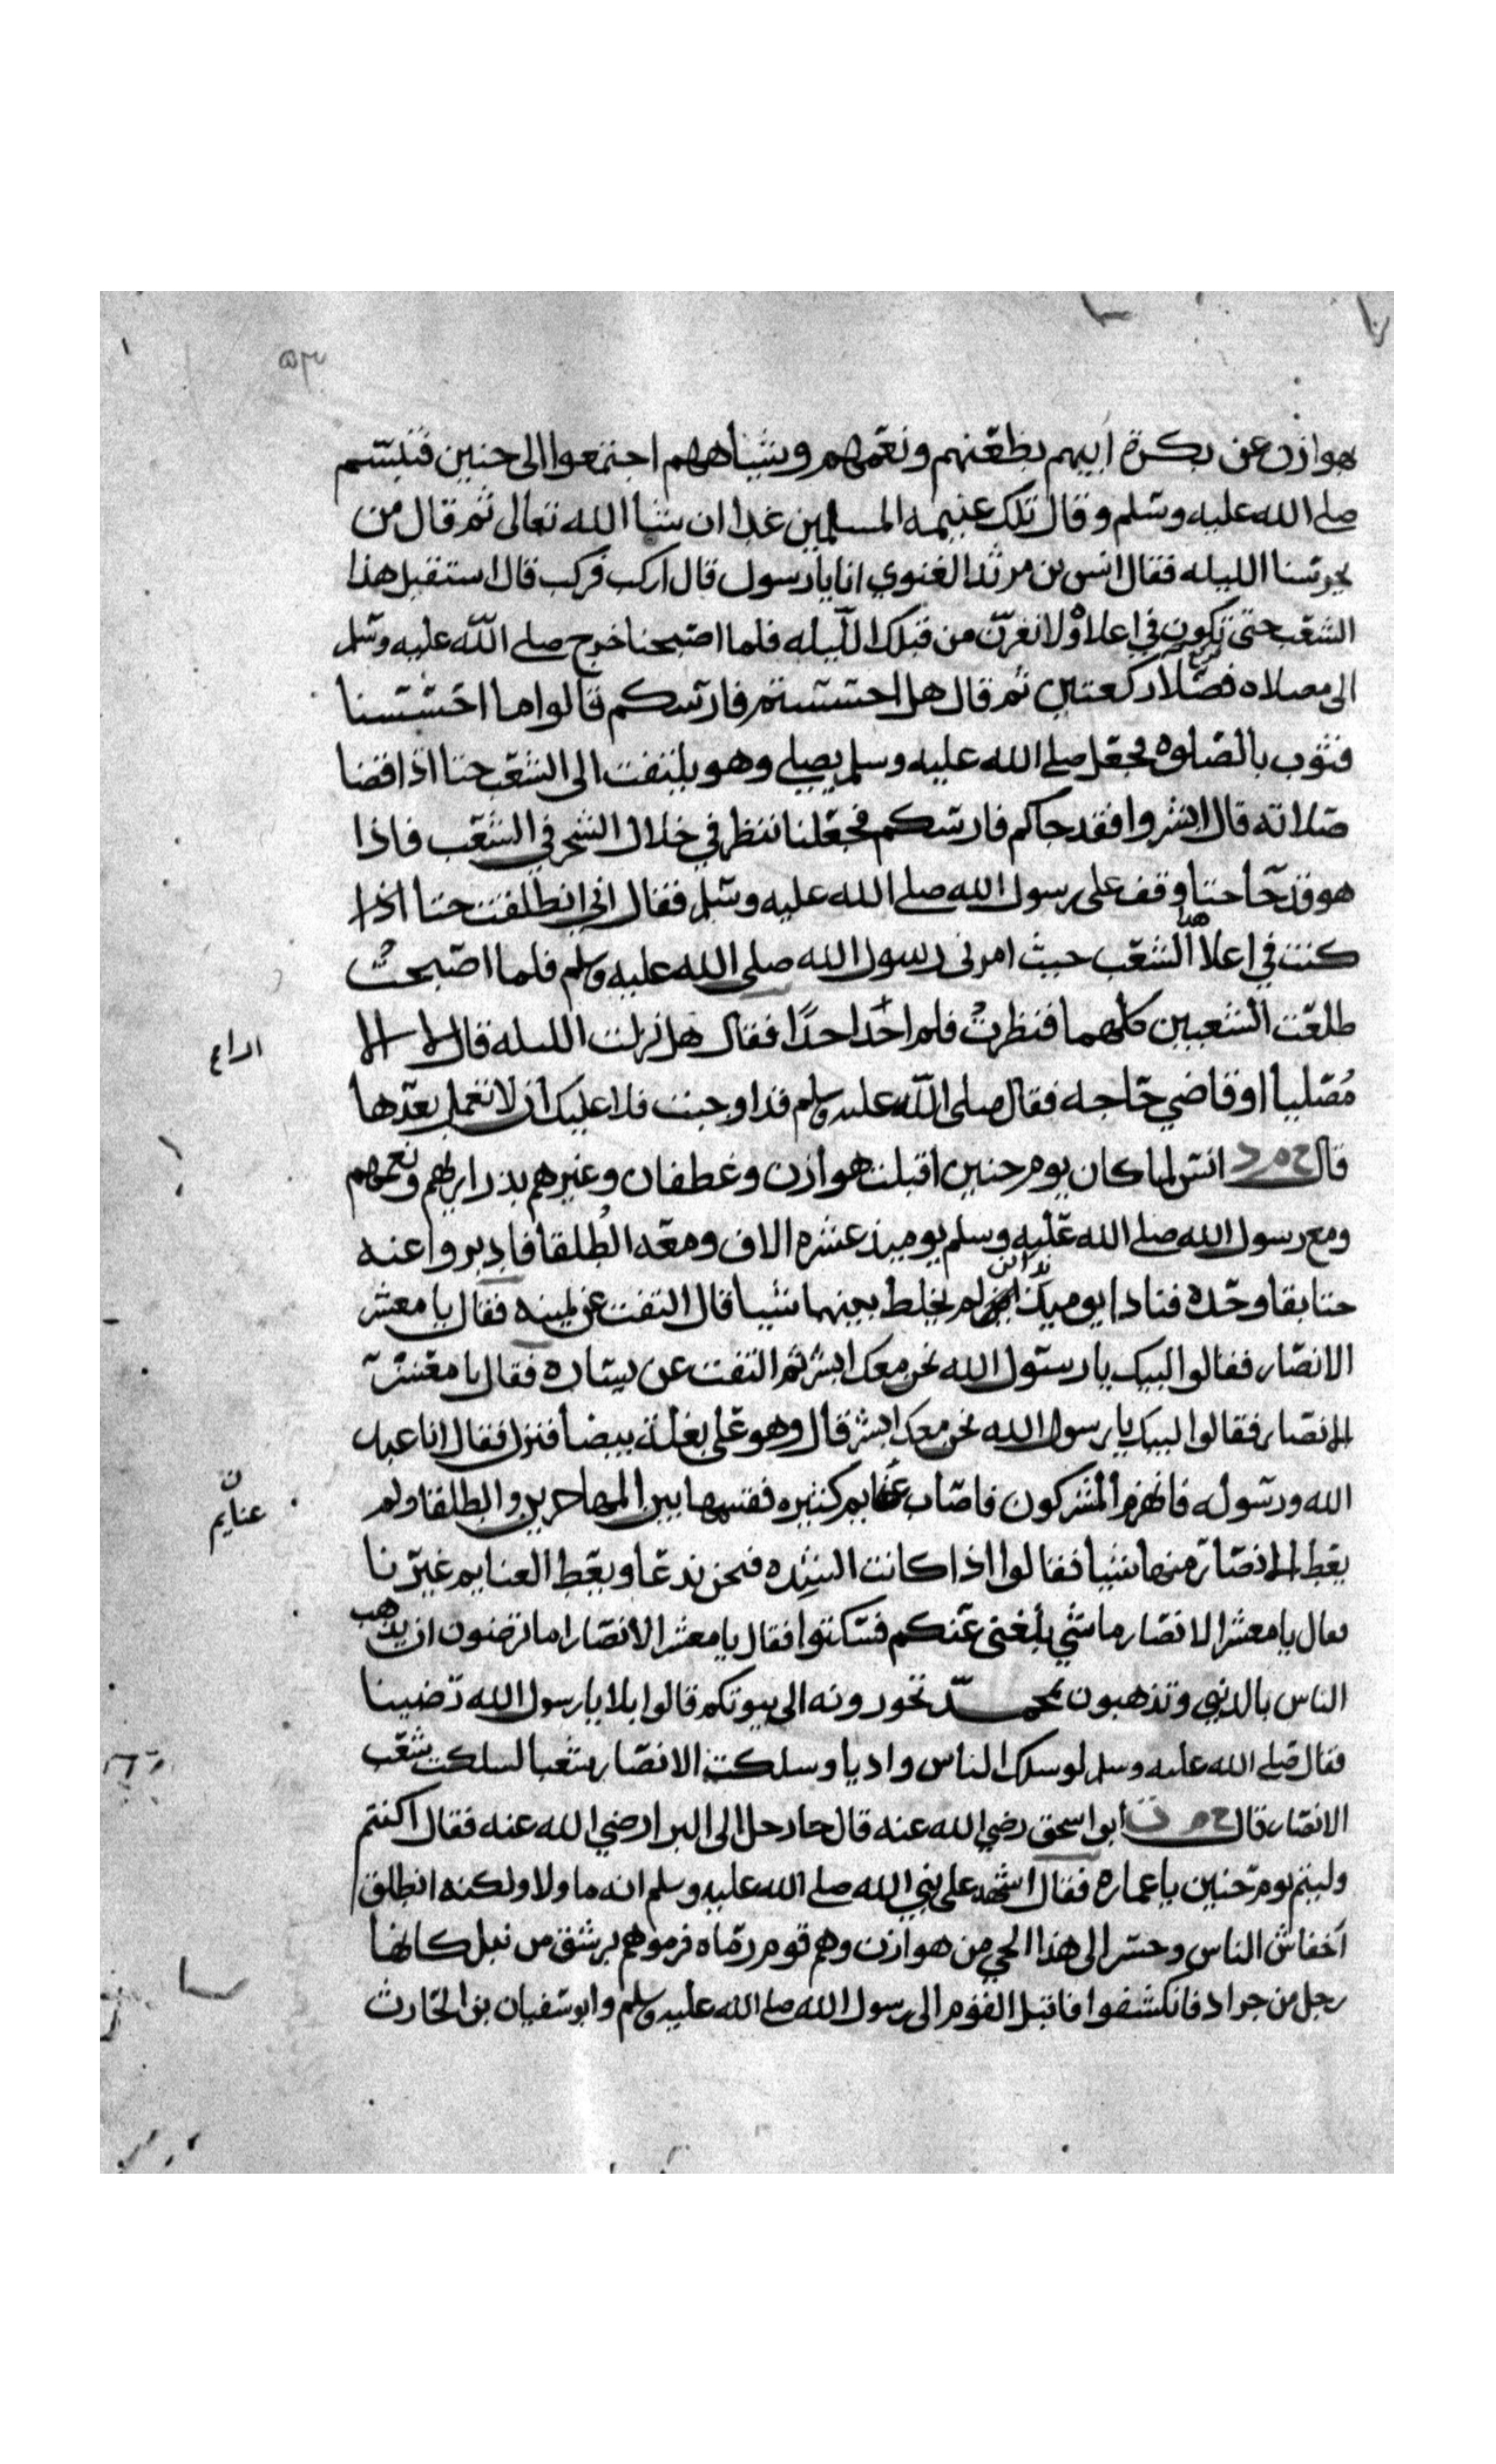 هوازن عن بكرة ابيهم بظعنهم ونعمهم وشياههم اجتمعوا الى حنين فتبسم
صلى الله عليه وسلم وقال تلك غنيمه المسلمين غدا ان شا الله تعالى ثم قال من
يحرسنا الليله فقال انس بن مرثد الغنوي انا يا رسول قال اركب فركب قال استقبل هذا
الشعب حتى تكون في اعلاه ولا نغرن من قبلك الليله فلما اصبحنا خرج صلى الله عليه وسلم
الى مصلاه فصلا ركعتين ثم قال هل احسستم فارسكم قالوا ما احسسنا
فثوب بالصلوه فجعل صلى الله عليه وسلم يصلي وهو يلتفت الى الشعب حتا اذا قضا
صلاته قال ابشروا فقد جاكم فارسكم فجعلنا ننظر في خلال الشجر في الشعب فاذا
هو قد جا حتا وقف على رسول الله صلى الله عليه وسلم فقال اني انطلقت حتا اذا
كنت في اعلا هذا الشعب حيث امرنى رسول الله صلى الله عليه وسلم فلما اصبحت
طلعت الشعبين كلهما فنظرت فلم احدا احدا فقال هل نزلت الليله قال لا الا
مصليا او قاضي حاجه فقال صلى الله عليه وسلم قد اوجبت فلا عليك ان لا تعمل بعدها
قال خ م د انس لما كان يوم حنين اقبلت هوازن وغطفان وغيرهم بذراريهم ونعمهم
ومع رسول الله صلى الله عليه وسلم يوميذ عشره الاف ومعه الطلقا فادبروا عنه
حتا بقا وحده فنادا يوميذ نداين لم يخلط بينهما شيا قال التفت عن يمينه فقال يا معشر
الانصار فقالوا لبيك يا رسول الله نحن معك ابشر ثم التفت عن يساره فقال يا معشر
الانصار فقالوا لبيك يا رسول الله نحن معك ابشر قال وهو على بغلة بيضا فنزل فقال انا عبد
الله ورسوله فانهزم المشركون فاصاب غنايم كثيره فقسمها بين المهاجرين والطلقا ولم
يعط الانصار منها شيا فقالوا اذا كانت الشده فنحن ندعا ويعط الغنايم غيرنا
فقال يا معشر الانصار ما شي بلغنى عنكم فسكتوا فقال يا معشر الانصار اما ترضون ان يذهب
الناس بالدنيى وتذهبون بمحمد تحوزونه الى بيوتكم قالوا بلا يا رسول الله رضينا
فقال صلى الله عليه وسلم لو سلك الناس واديا وسلكت الانصار شعبا لسلكت شعب
الانصار قال خ م ت ابو اسحق رضي الله عنه قال جا رجل الى البرا رضي الله عنه فقال اكنتم
وليتم يوم حنين يا عماره فقال اشهد على نبي الله صلى الله عليه وسلم انه ما ولا ولكنه انطلق
اخفاش الناس وحسر الى هذا الحي من هوازن وهم قوم رماه فرموهم برشق من نبل كانها
رجل من جراد فانكشفوا فاقبل القوم الى رسول الله صلى الله عليه وسلم وابو سفيان بن الحارث
ن
غنايم